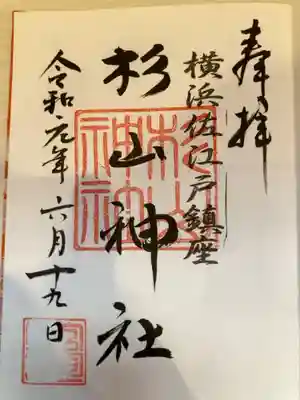 奉拝
横浜佐江戸鎮座
杉山神社
杉山神社
令和元年六月十九日